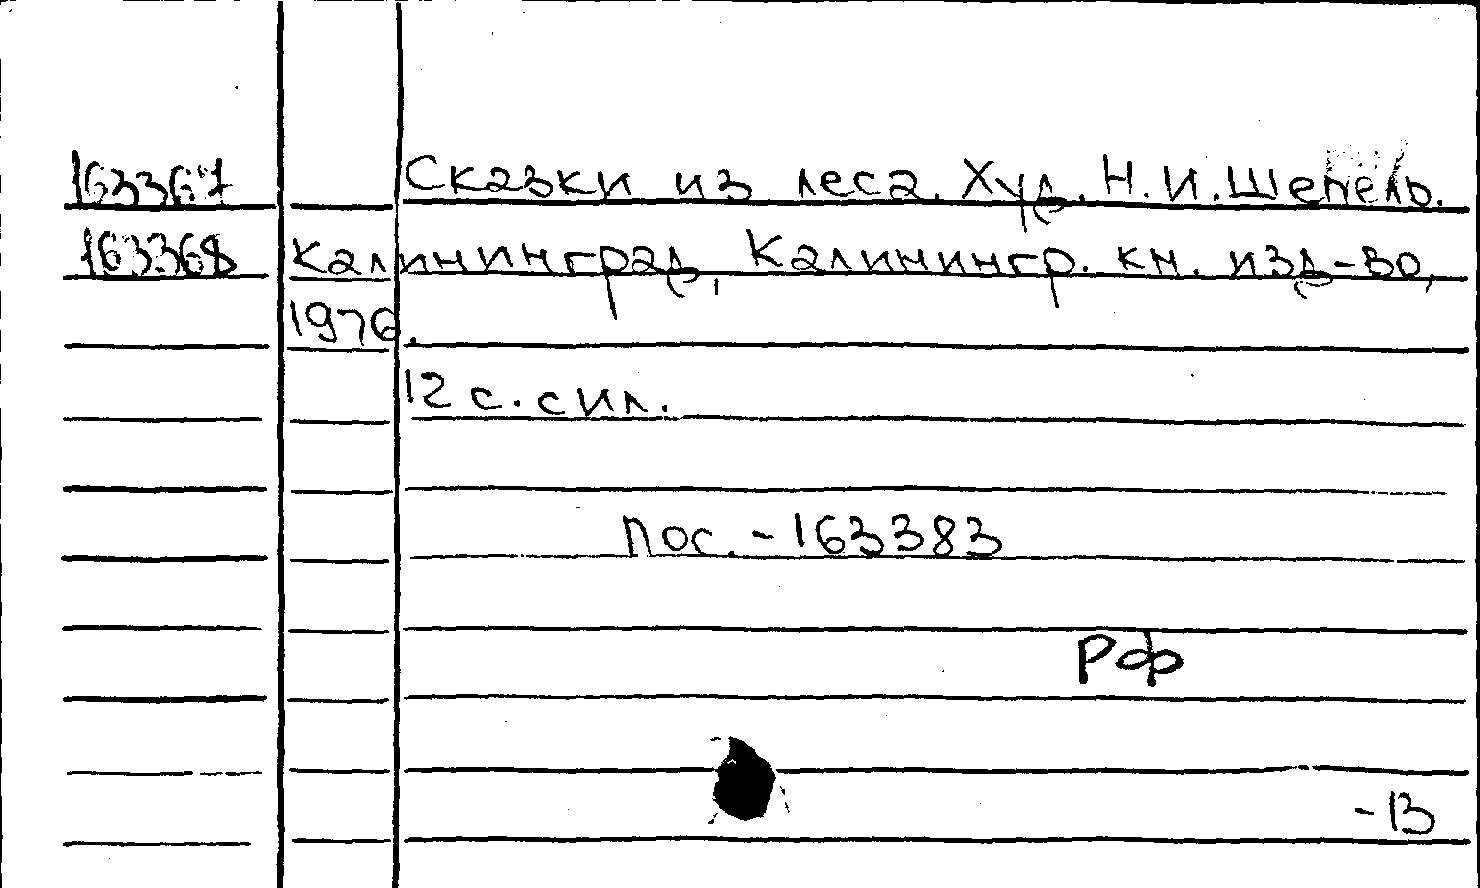 163367 Сказки из леса. Худ. Н.И.Шепель.
163368 Калининград, Калинингр. кн. изд-во,
1976.
12 с. с ил.
Пос. - 163383
РФ
-13